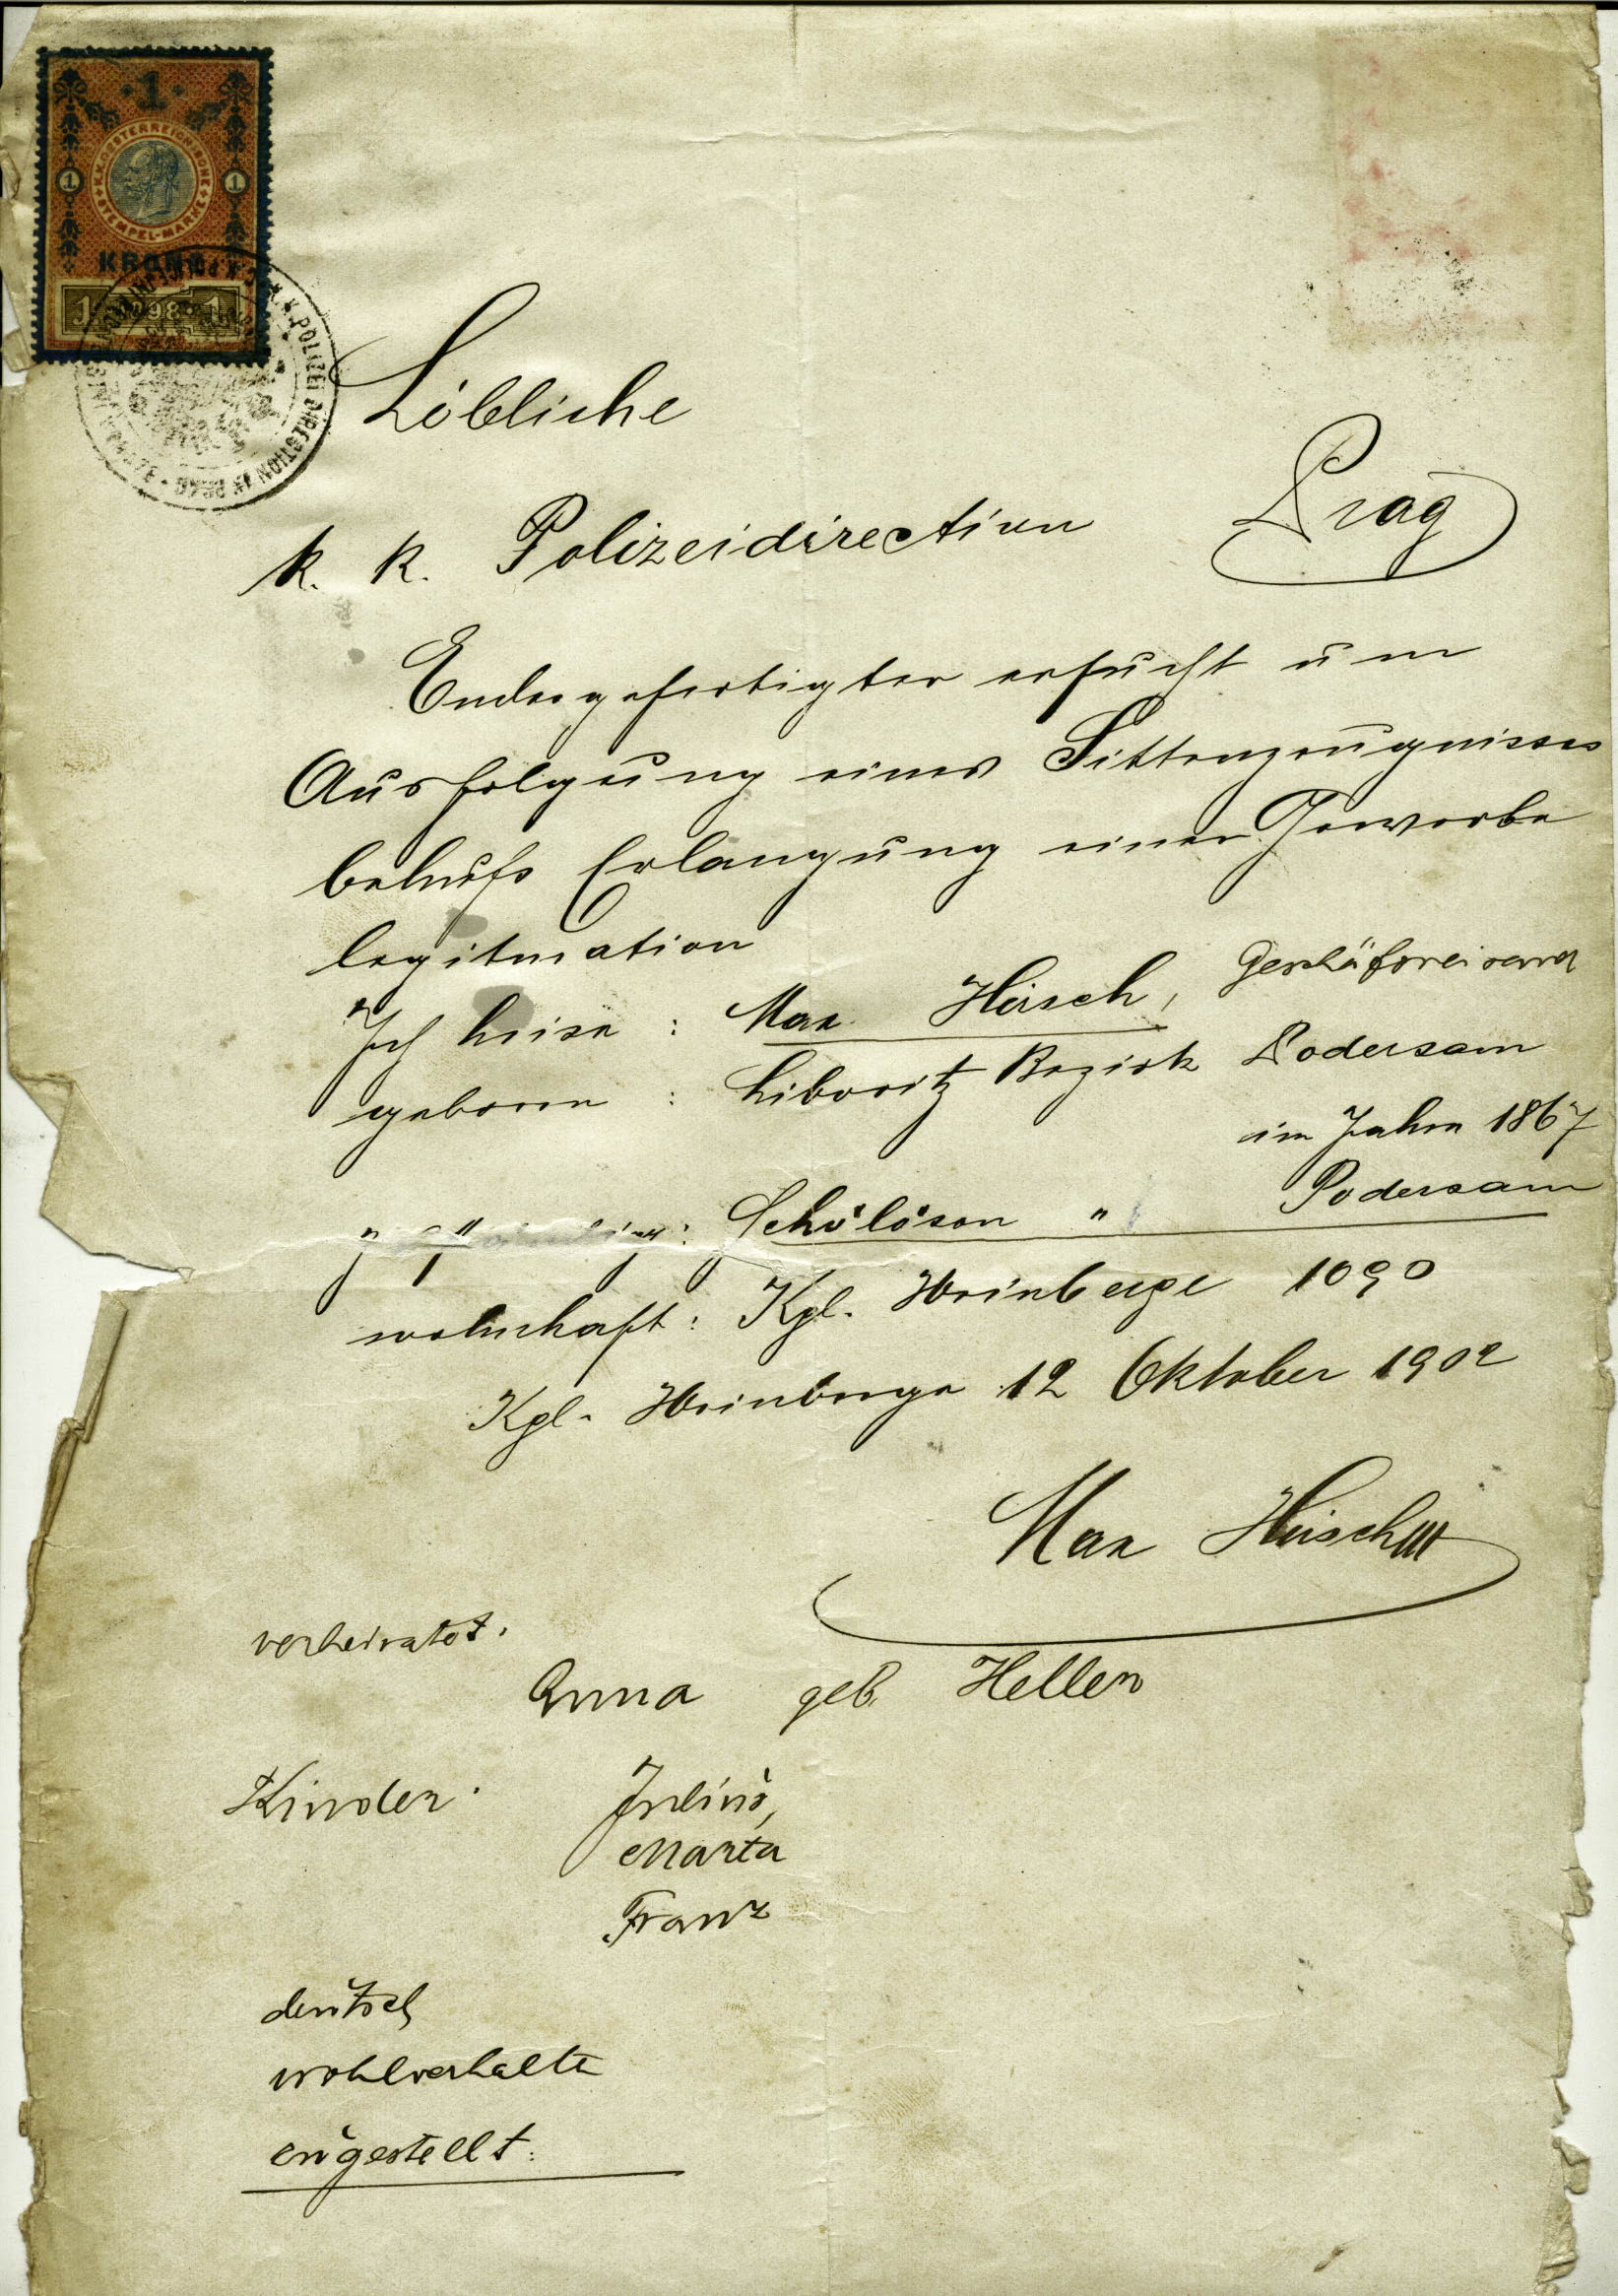 1
K.K. OESTERREICHISCHE
STEMPEL-MARKE
1 1
KRONE
1 1898 1
K.K. POLIZEI DIRECTION IN PRAG
Löbliche
k. k. Polizeidirection Prag
Endesgefertigter ersucht um
Ausfolgung eines Sittenzeugnisses
behufs Erlangung einer Gewerbe
legitmation
Ich heise : Max Hirsch, Geschäfsreisend
geboren : Liboritz Bezirk Podersam
im Jahre 1867
Schölöson " Podersam
wohnhaft : Kgl. Weinberge 1090
Kgl. Weinberge 12 Oktober 1902
Max Hirsch
verheiratet.
Anna geb. Heller
Kinder: Julius,
Marta
Franz
deutsch
wohlverhalten
eingestellt: